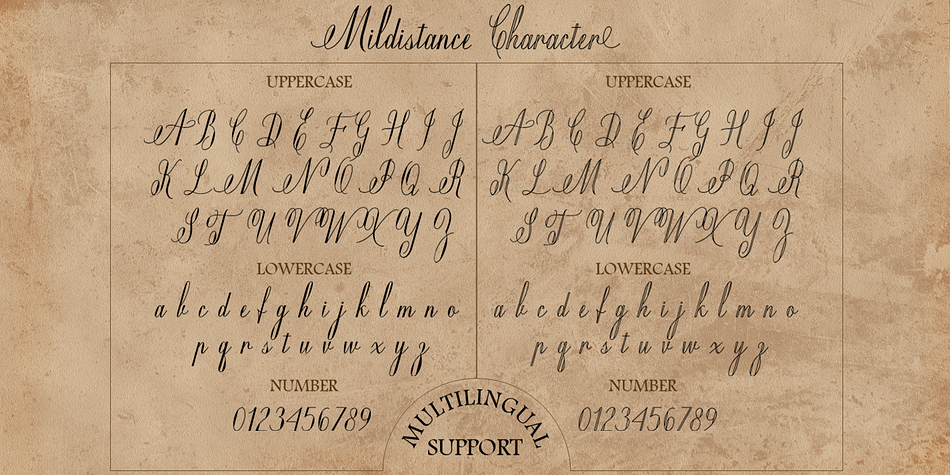 Mildistance Character
UPPERCASE
A B C D E F G H I J
K L M N O P Q R
S T U V W X Y Z
LOWERCASE
a b c d e f g h i j k l m n o
p q r s t u v w x y z
NUMBER
0123456789
UPPERCASE
A B C D E F G H I J
K L M N O P Q R
S T U V W X Y Z
LOWERCASE
a b c d e f g h i j k l m n o
p q r s t u v w x y z
NUMBER
0123456789
MULTILINGUAL
SUPPORT